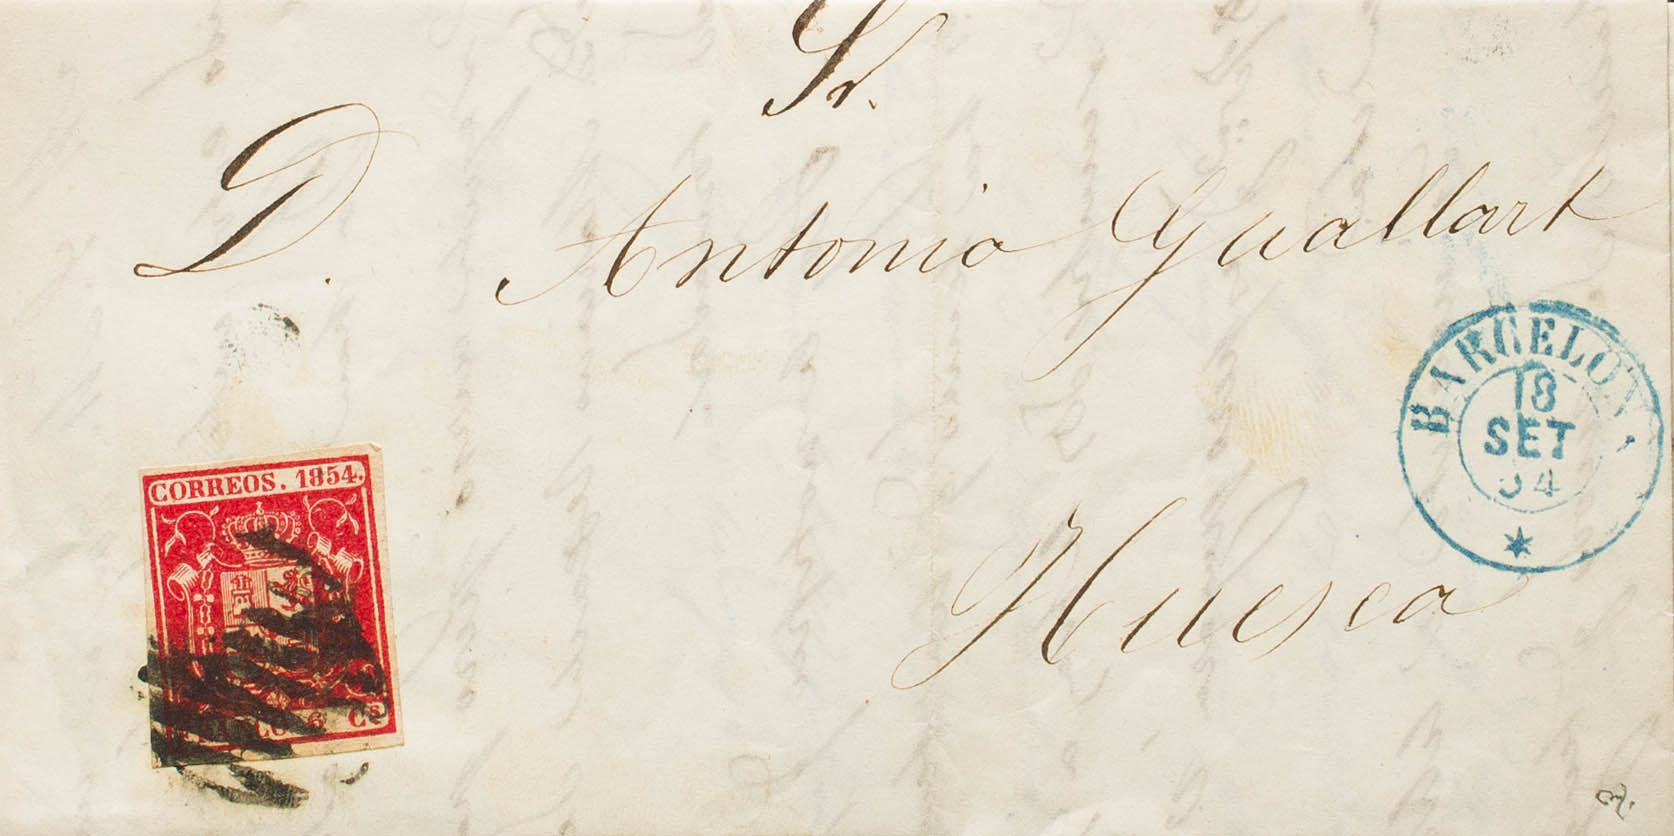 Sr.
D. Antonio Guallart
BARCELON
18
SET
54
CORREOS. 1854.
Huesca
6 Cs